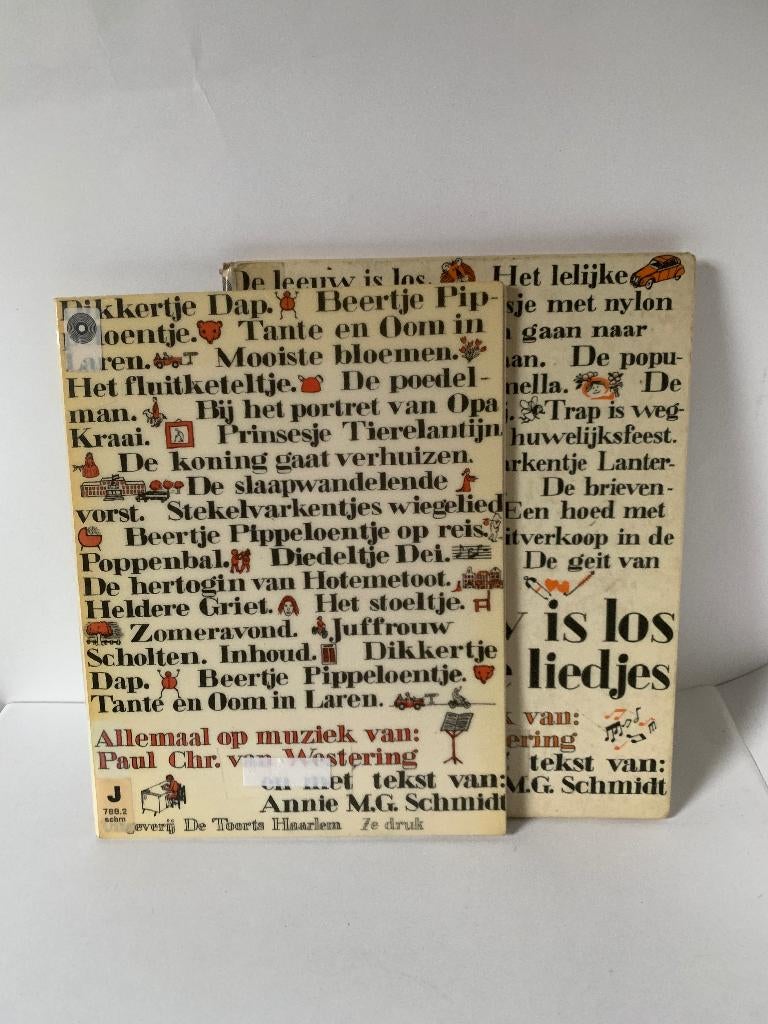 Dikkertje Dap. Beertje Pip-
loentje. Tante en Oom in
Laren. Mooiste bloemen.
Het fluitketeltje. De poedel-
man. Bij het portret van Opa
Kraai. Prinsesje Tierelantijn
De koning gaat verhuizen.
De slaapwandelende
vorst. Stekelvarkentjes wiegelied
Beertje Pippeloentje op reis.
Poppenbal. Diedeltje Dei.
De hertogin van Hotemetoot.
Heldere Griet. Het stoeltje.
Zomeravond. Juffrouw
Scholten. Inhoud. Dikkertje
Dap. Beertje Pippeloentje.
Tante en Oom in Laren.
Allemaal op muziek van:
Paul Chr. van Westering
en met tekst van:
Annie M.G. Schmidt
Uitgeverij De Toorts Haarlem 7e druk
J
786.2
schm
De leeuw is los. Het lelijke
sje met nylon
gaan naar
an. De popu-
nella. De
Trap is weg-
huwelijksfeest.
arkentje Lanter-
De brieven-
Een hoed met
itverkoop in de
De geit van
is los
liedjes
k van:
ering
tekst van:
M.G. Schmidt